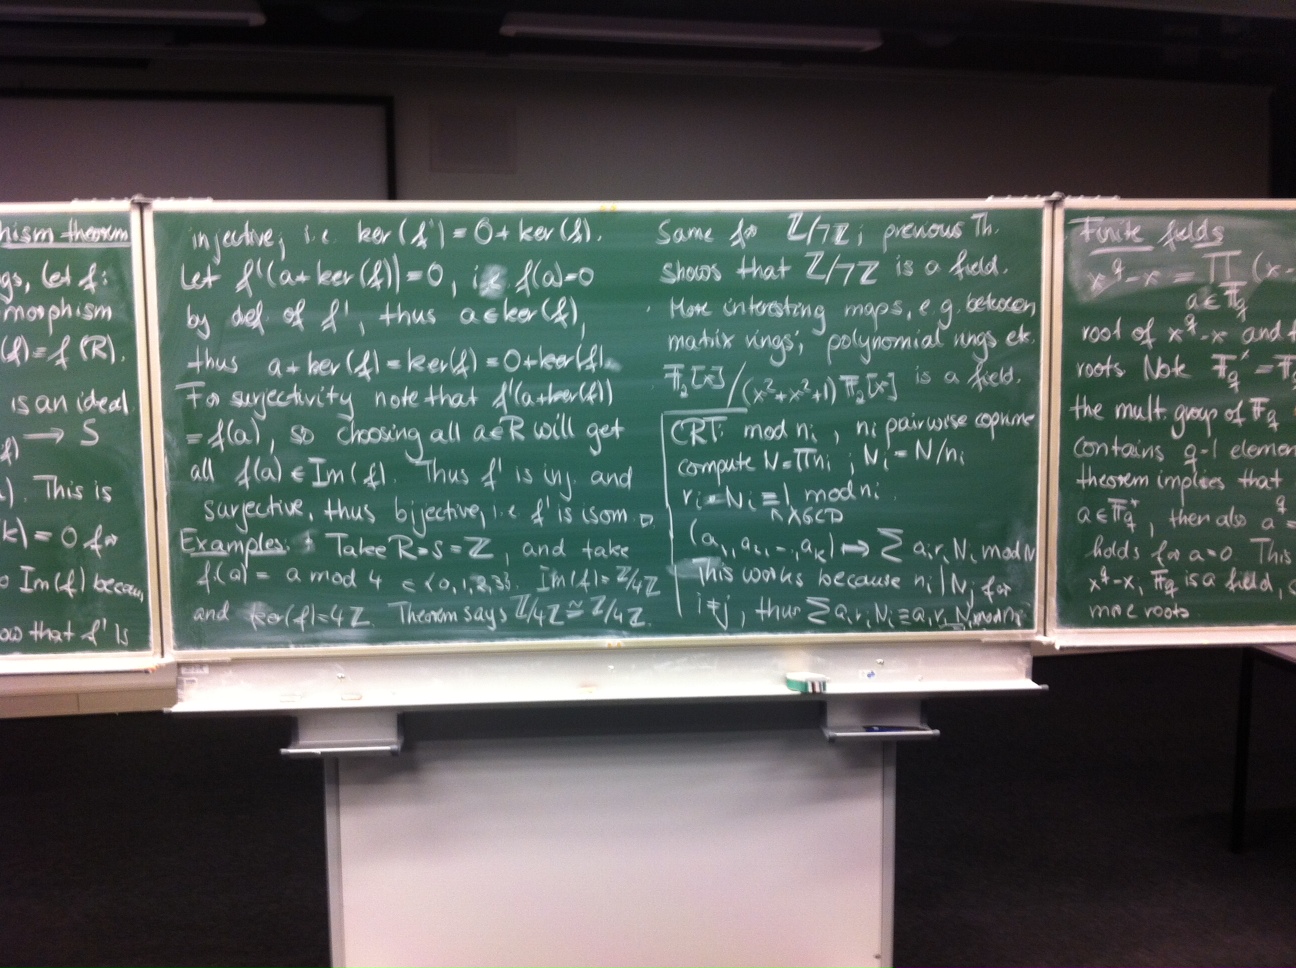 hism theorem
gs, let f:
omorphism
(f) = f(R).
is an ideal
→ S
). This is
k) = 0 for
Im(f) becau
ow that f' is
injective, i.e. ker(f') = 0 + ker(f).
Let f'(a + ker(f)) = 0, i.e. f(a) = 0
by def. of f', thus a ∈ ker(f),
thus a + ker(f) = ker(f) = 0 + ker(f).
For surjectivity note that f'(a + ker(f))
= f(a), so choosing all a ∈ R will get
all f(a) ∈ Im(f). Thus f' is inj. and
surjective, thus bijective, i.e. f' is isom. □
Examples: Take R = S = ℤ, and take
f(a) = a mod 4 ∈ {0, 1, 2, 3}. Im(f) = ℤ/4ℤ
and ker(f) = 4ℤ. Theorem says ℤ/4ℤ ≅ ℤ/4ℤ.
Same for ℤ/7ℤ; previous Th.
shows that ℤ/7ℤ is a field.
More interesting maps, e.g. between
matrix rings; polynomial rings etc.
𝔽₂[x]/(x²+x²+1)𝔽₂[x] is a field.
CRT: mod nᵢ, nᵢ pairwise coprime
compute N = Πnᵢ; Nᵢ = N/nᵢ
rᵢ Nᵢ ≡ 1 mod nᵢ
↖ XGCD
(a₁, a₂, ..., aₖ) ↦ Σ aᵢrᵢNᵢ mod N
This works because nᵢ | Nⱼ for
i≠j, thus Σ aᵢrᵢNᵢ ≡ aᵢrᵢNᵢ mod nᵢ
Finite fields
x^q - x = Π (x -
a ∈ 𝔽_q
root of x^q - x and f
roots. Note 𝔽_q^* = 𝔽
the mult. group of 𝔽_q
contains q-1 elemen
theorem implies that
a ∈ 𝔽_q^*, then also a^q =
holds for a=0. This
x^q - x, 𝔽_q is a field,
more roots